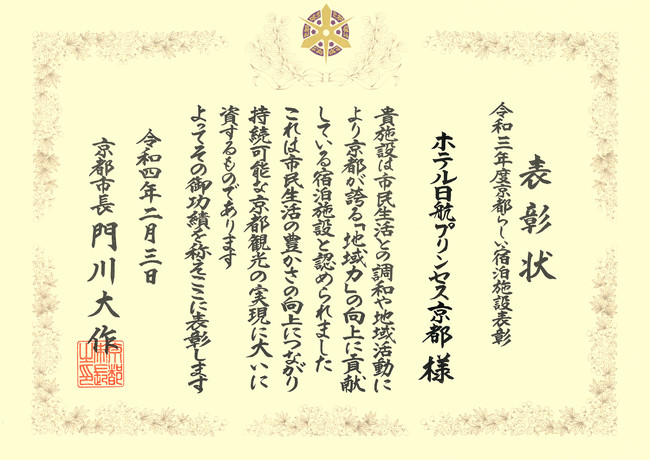 表彰状
令和三年度京都らしい宿泊施設表彰
ホテル日航プリンセス京都 様
貴施設は市民生活との調和や地域活動に
より京都が誇る「地域力」の向上に貢献
している宿泊施設と認められました
これは市民生活の豊かさの向上につながり
持続可能な京都観光の実現に大いに
資するものであります
よってその御功績を称えここに表彰します
令和四年二月三日
京都市長 門川大作
京都
市長
之印